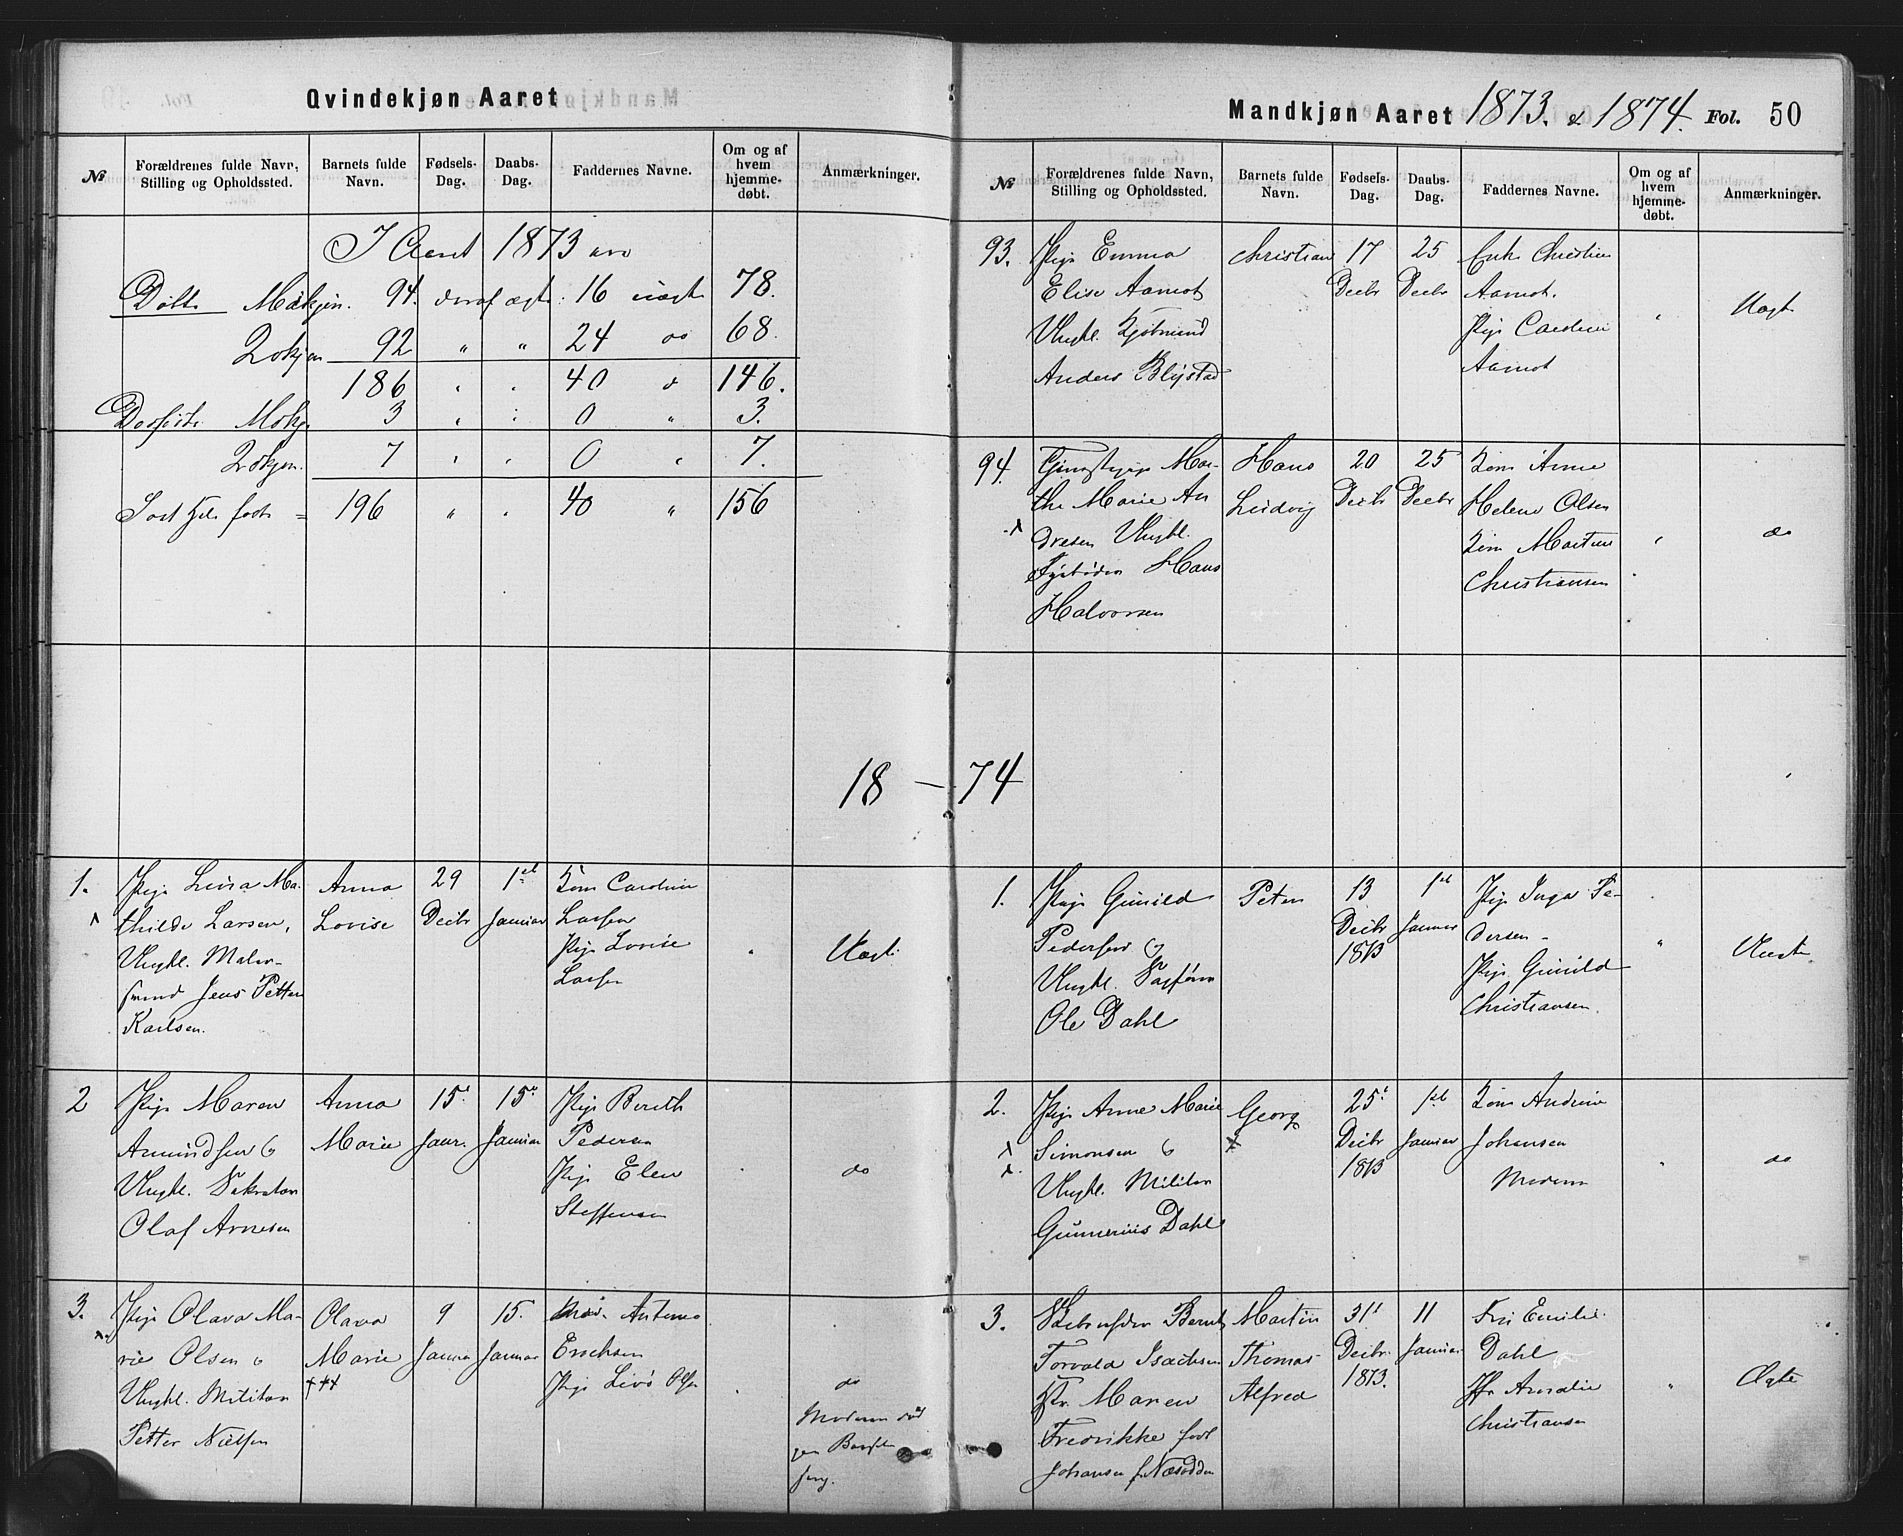 Qvindekjøn Aaret
№
Forældrenes fulde Navn,
Stilling og Opholdssted.
Barnets fulde
Navn.
Fødsels-
Dag.
Daabs-
Dag.
Faddernes Navne.
Om og af
hvem
hjemme-
døbt.
Anmærkninger.
I Aaret 1873 ere
Døbte 94. deraf ægte 16 uægte 78.
92 " " 24 do 68.
186 " " 40 146.
3 " " 0 " 3.
7 " " 0 " 7.
196 " " 40 " 156
18 –
1.
Pige Lovisa Ma-
thilde Larsen,
Ungkl. Maler-
svend Jens Petter
Karlsen.
Anna
Lovise
29
Decbr
1st
Januar
Kone Caroline
Larsen
Pige Lovise
Larsen
Uægte
2
Pige Maren
Amundsen &
Ungkl.
Olaf Arnesen
Anna
Marie
15de
Januar
15de
Januar
Pige Bereth
Pedersen
Pige Elen
Steffensen
do
3.
Pige Olava Ma-
rie Olsen &
Ungkl. Militær
Petter Nielsen
Olava
Marie
+++
9
Januar
15.
Januar
Erichsen
Pige
do
Moderen
Mandkjøn Aaret 1873. & 1874. Fol. 50
№
Forældrenes fulde Navn,
Stilling og Opholdssted.
Barnets fulde
Navn.
Fødsels-
Dag.
Daabs-
Dag.
Faddernes Navne.
Om og af
hvem
hjemme-
døbt.
Anmærkninger.
93.
Pige Emma
Elise Aamot
Ungkl. Kjøbmand
Anders Blystad
Christian
17
Decbr
25
Decbr
Enke Christine
Aamot.
Pige Caroline
Aamot
Uægte
94.
Tjenestepige Mar-
the Marie An
dresen Ungkl.
Fyrbøder Hans
Halvorsen
Hans
Ludvig
20
Decbr
25
Decbr
Kone Anne
Helene Olsen
Kone Martine
Christiansen
do
74
1.
Pige Gunild
Pedersen &
Ungkl.
Ole Dahl
Peter
13
Decbr
1873
1st
Januar
Pige Inga Pe-
dersen –
Pige Gunild
Christiansen.
Uægte
2.
Pige Anne Marie
Simonsen &
Ungkl. Militær
Gunnerius Dahl
Georg
+
25de
Decbr
1873
1st
Januar
Kone Andrine
Johansen
Moderen
do
3.
Bernt
Torvald Isachsen
Maren
Fredrikke født
Johansen f. Næsodden
Martin
Thomas
Alfred
31te
Decbr.
1873.
11
Januar
Emilie
Dahl
Amalie
Christiansen
Ægte